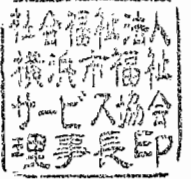 社会福祉法人
横浜市福祉
サービス協会
理事長印